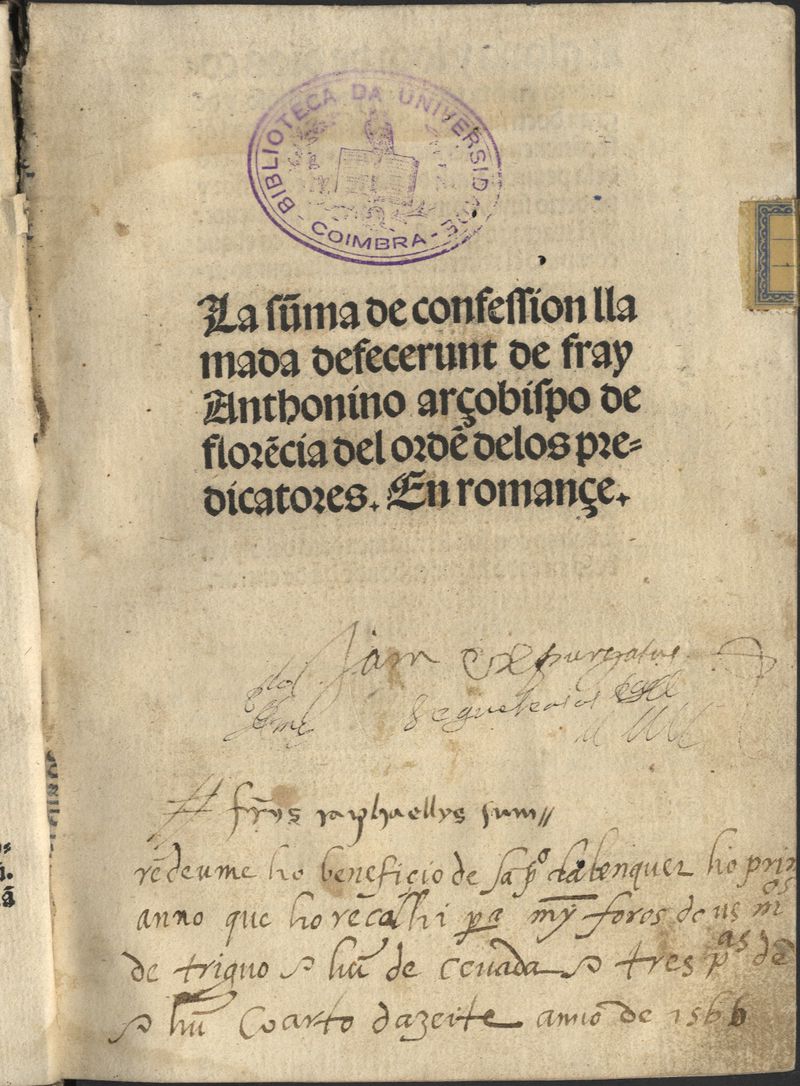 BIBLIOTECA DA UNIVERSIDADE
- COIMBRA -
La sūma de confession lla
mada defecerunt de fray
Anthonino arçobispo de
florēcia del ordē delos pre=
dicatores. En romançe.
Jam expurgatus
# frūs raphaellys sum//
rēdeume ho beneficio de sã pº dalenquer ho prim
anno que ho recolhi pa mỹ foros
de triguo hū de ceuada tres pas de
hū coarto dazeite anno de 1566